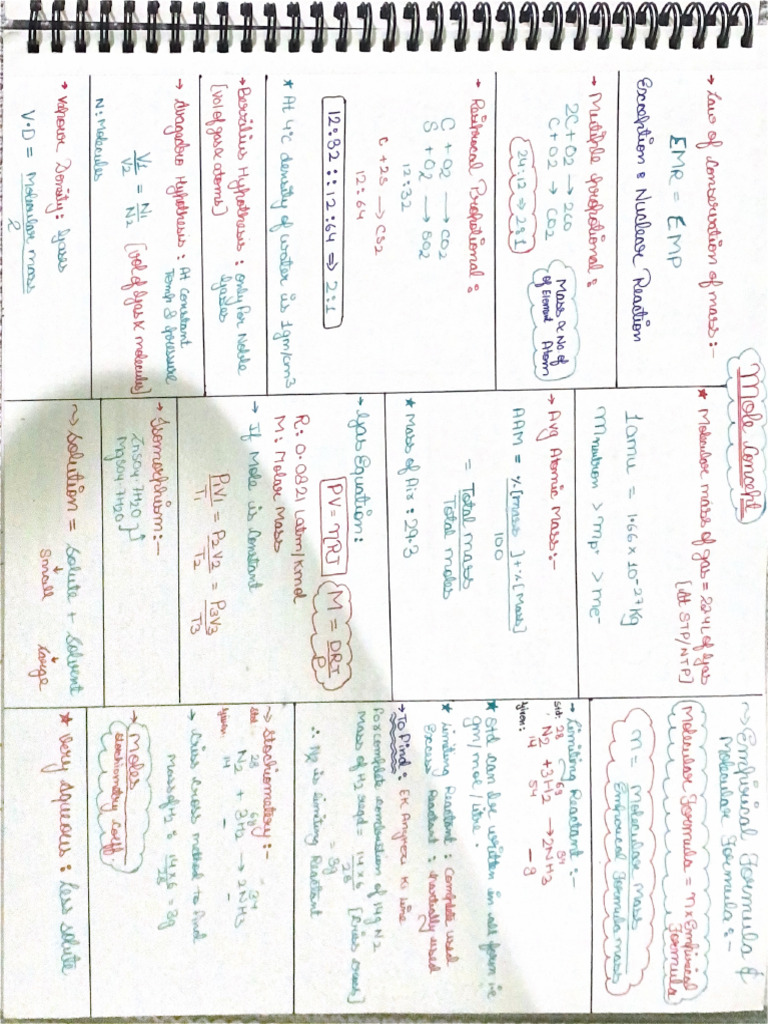 Mole Concept
→ Law of conservation of mass :-
EMR = EMP
Exception : Nuclear Reaction
→ Multiple proportional :
2C + O2 → 2CO
C + O2 → CO2
24:12 ⇒ 2:1
Mass ∝ No of
of Element Atom
→ Reciprocal Proportional :
C + O2 → CO2
S + O2 → SO2
12:32
C + 2S → CS2
12:64
12:32 :: 12:64 ⇒ 2:1
★ At 4°C density of water is 1gm/cm3
→ Berzilius Hypothesis : only for Noble
[vol of gas ∝ atoms] gases
→ Avagadro Hypothesis : At constant
Temp & pressure
V1/V2 = N1/N2 [vol of gas ∝ molecule]
N: Molecules
→ Vapour Density : gases
V.D = Molecular mass / 2
★ Molecular mass of gas = 22.4L of gas
[At STP/NTP]
1 amu = 1.66 × 10-27 kg
Mneutron > mp > me-
→ Avg Atomic Mass :-
AAM = %[mass] + %[Mass] / 100
= Total mass / Total moles
★ Mass of Air : 29.3
→ Gas Equation :
PV = nRT
M = DRT / P
R: 0.0821 latm/kmol
M: Molar Mass
→ If Mole is constant
P1V1/T1 = P2V2/T2 = P3V3/T3
→ Isomorphism :-
ZnSO4.7H2O
MgSO4.7H2O
~> Solution = Solute + Solvent
small large
~> Empirical Formula &
Molecular Formula :-
Molecular Formula = n × Empirical
Formula
n = Molecular mass / Empirical Formula mass
→ Limiting Reactant :-
Std: 28 6g 34
N2 + 3H2 → 2NH3
given: 14 54 - 9
★ Std can be written in all form ie
gm/mol/litre.
★ Limiting Reactant : Complete used
Excess Reactant : Partially used
→ To Find : Ek Angrez Ki line
For complete combustion of 14g N2
Mass of H2 reqd = 14×6 / 28 [Criss cross]
= 3g
∴ N2 is limiting Reactant
~> Stochiometery :-
Std: 28 6g = 34
N2 + 3H2 → 2NH3
given: 14 - -
→ Criss cross method to find
Mass of H2 : 14×6 / 28 = 3g
→ Moles / Stochiometry coeff.
★ Very Aqueous : Less solute